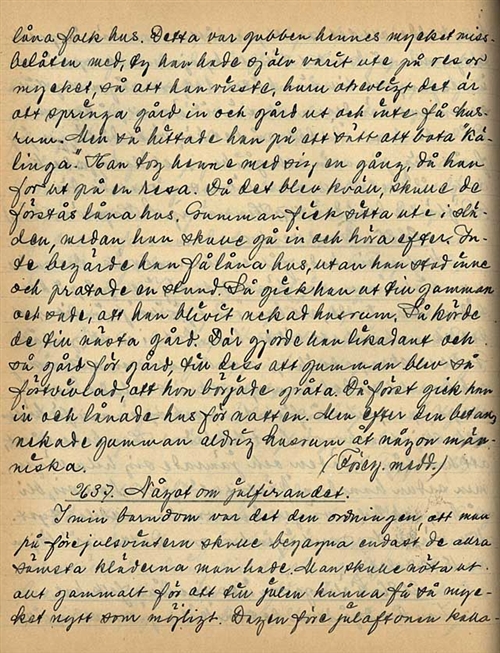 låna folk hus. Detta var gubben hennes mycket miss-
belåten med, ty han hade själv varit ute på resor
mycket, så att han visste, huru otrevligt det är
att springa gård in och gård ut och inte få hus-
rum. Men så hittade han på ett sätt att bota "kä-
linga". Han tog henne med sig en gång, då han
for ut på en resa. Då det blev kväll, skulle de
förstås låna hus. Gumman fick sitta ute i slä-
den, medan han skulle gå in och höra efter. In-
te begärde han få låna hus, utan han stod inne
och pratade en stund. Så gick han ut till gumman
och sade, att han blivit nekad husrum. Så körde
de till nästa gård. Där gjorde han likadant och
så gård för gård, till dess att gumman blev så
förtvivlad, att hon började gråta. Då först gick han
in och lånade hus för natten. Men efter den betan
nekade gumman aldrig husrum åt någon män-
niska. (Föreg. medd.)
2637. Något om julfirandet.
I min barndom var det den ordningen, att man
på förejulsvintern skulle begagna endast de allra
sämsta kläderna man hade. Man skulle nöta ut
allt gammalt för att till julen kunna få så myc-
ket nytt som möjligt. Dagen före julaftonen kalla-